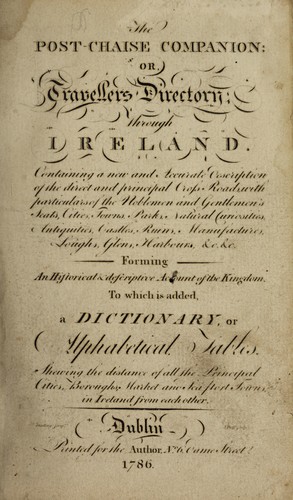 The
POST-CHAISE COMPANION:
OR,
Travellers Directory,
Through
IRELAND.
Containing a new and Accurate Description
of the direct and principal Cross Roads, with
particulars of the Noblemen and Gentlemen's
Seats, Cities, Towns, Parks, Natural Curiosities,
Antiquities, Castles, Ruins, Manufactures,
Loughs, Glens, Harbours, &c. &c.
Forming
An Historical & descriptive Account of the Kingdom.
To which is added,
a DICTIONARY, or
Alphabetical Tables.
Shewing the distance of all the Principal
Cities, Boroughs, Market and Sea Port Towns
in Ireland from each other.
Dublin
Printed for the Author, No. 6, Dame Street
1786.